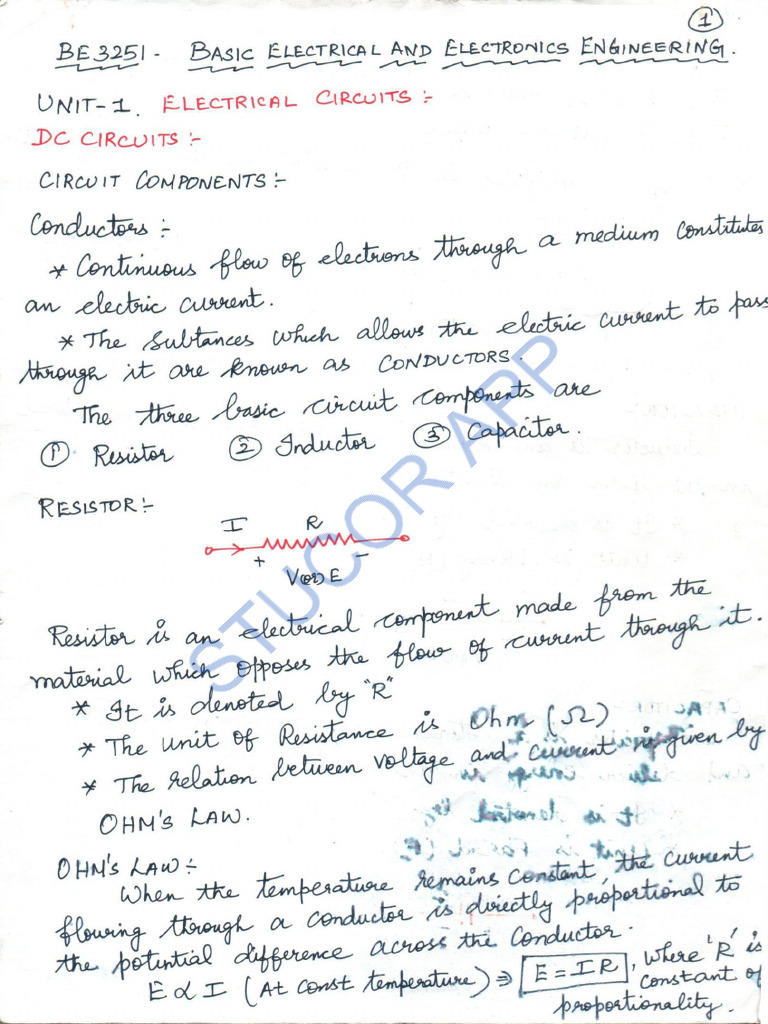 1
BE3251 - BASIC ELECTRICAL AND ELECTRONICS ENGINEERING.
UNIT-1. ELECTRICAL CIRCUITS :-
DC CIRCUITS :-
CIRCUIT COMPONENTS :-
Conductors :-
* Continuous flow of electrons through a medium constitutes
an electric current.
* The Subtances which allows the electric current to pass
through it are known as CONDUCTORS.
The three basic circuit components are
① Resistor ② Inductor ③ Capacitor.
RESISTOR :-
I R
+ -
V(or) E
STUCOR APP
Resistor is an electrical component made from the
material which opposes the flow of current through it.
* It is denoted by "R"
* The Unit of Resistance is Ohm (Ω)
* The relation between voltage and current is given by
OHM'S LAW.
OHM'S LAW :-
When the temperature remains constant, the current
flowing through a conductor is directly proportional to
the potential difference across the conductor.
E ∝ I (At const temperature) ⇒ E = IR, where 'R' is
constant of
proportionality.